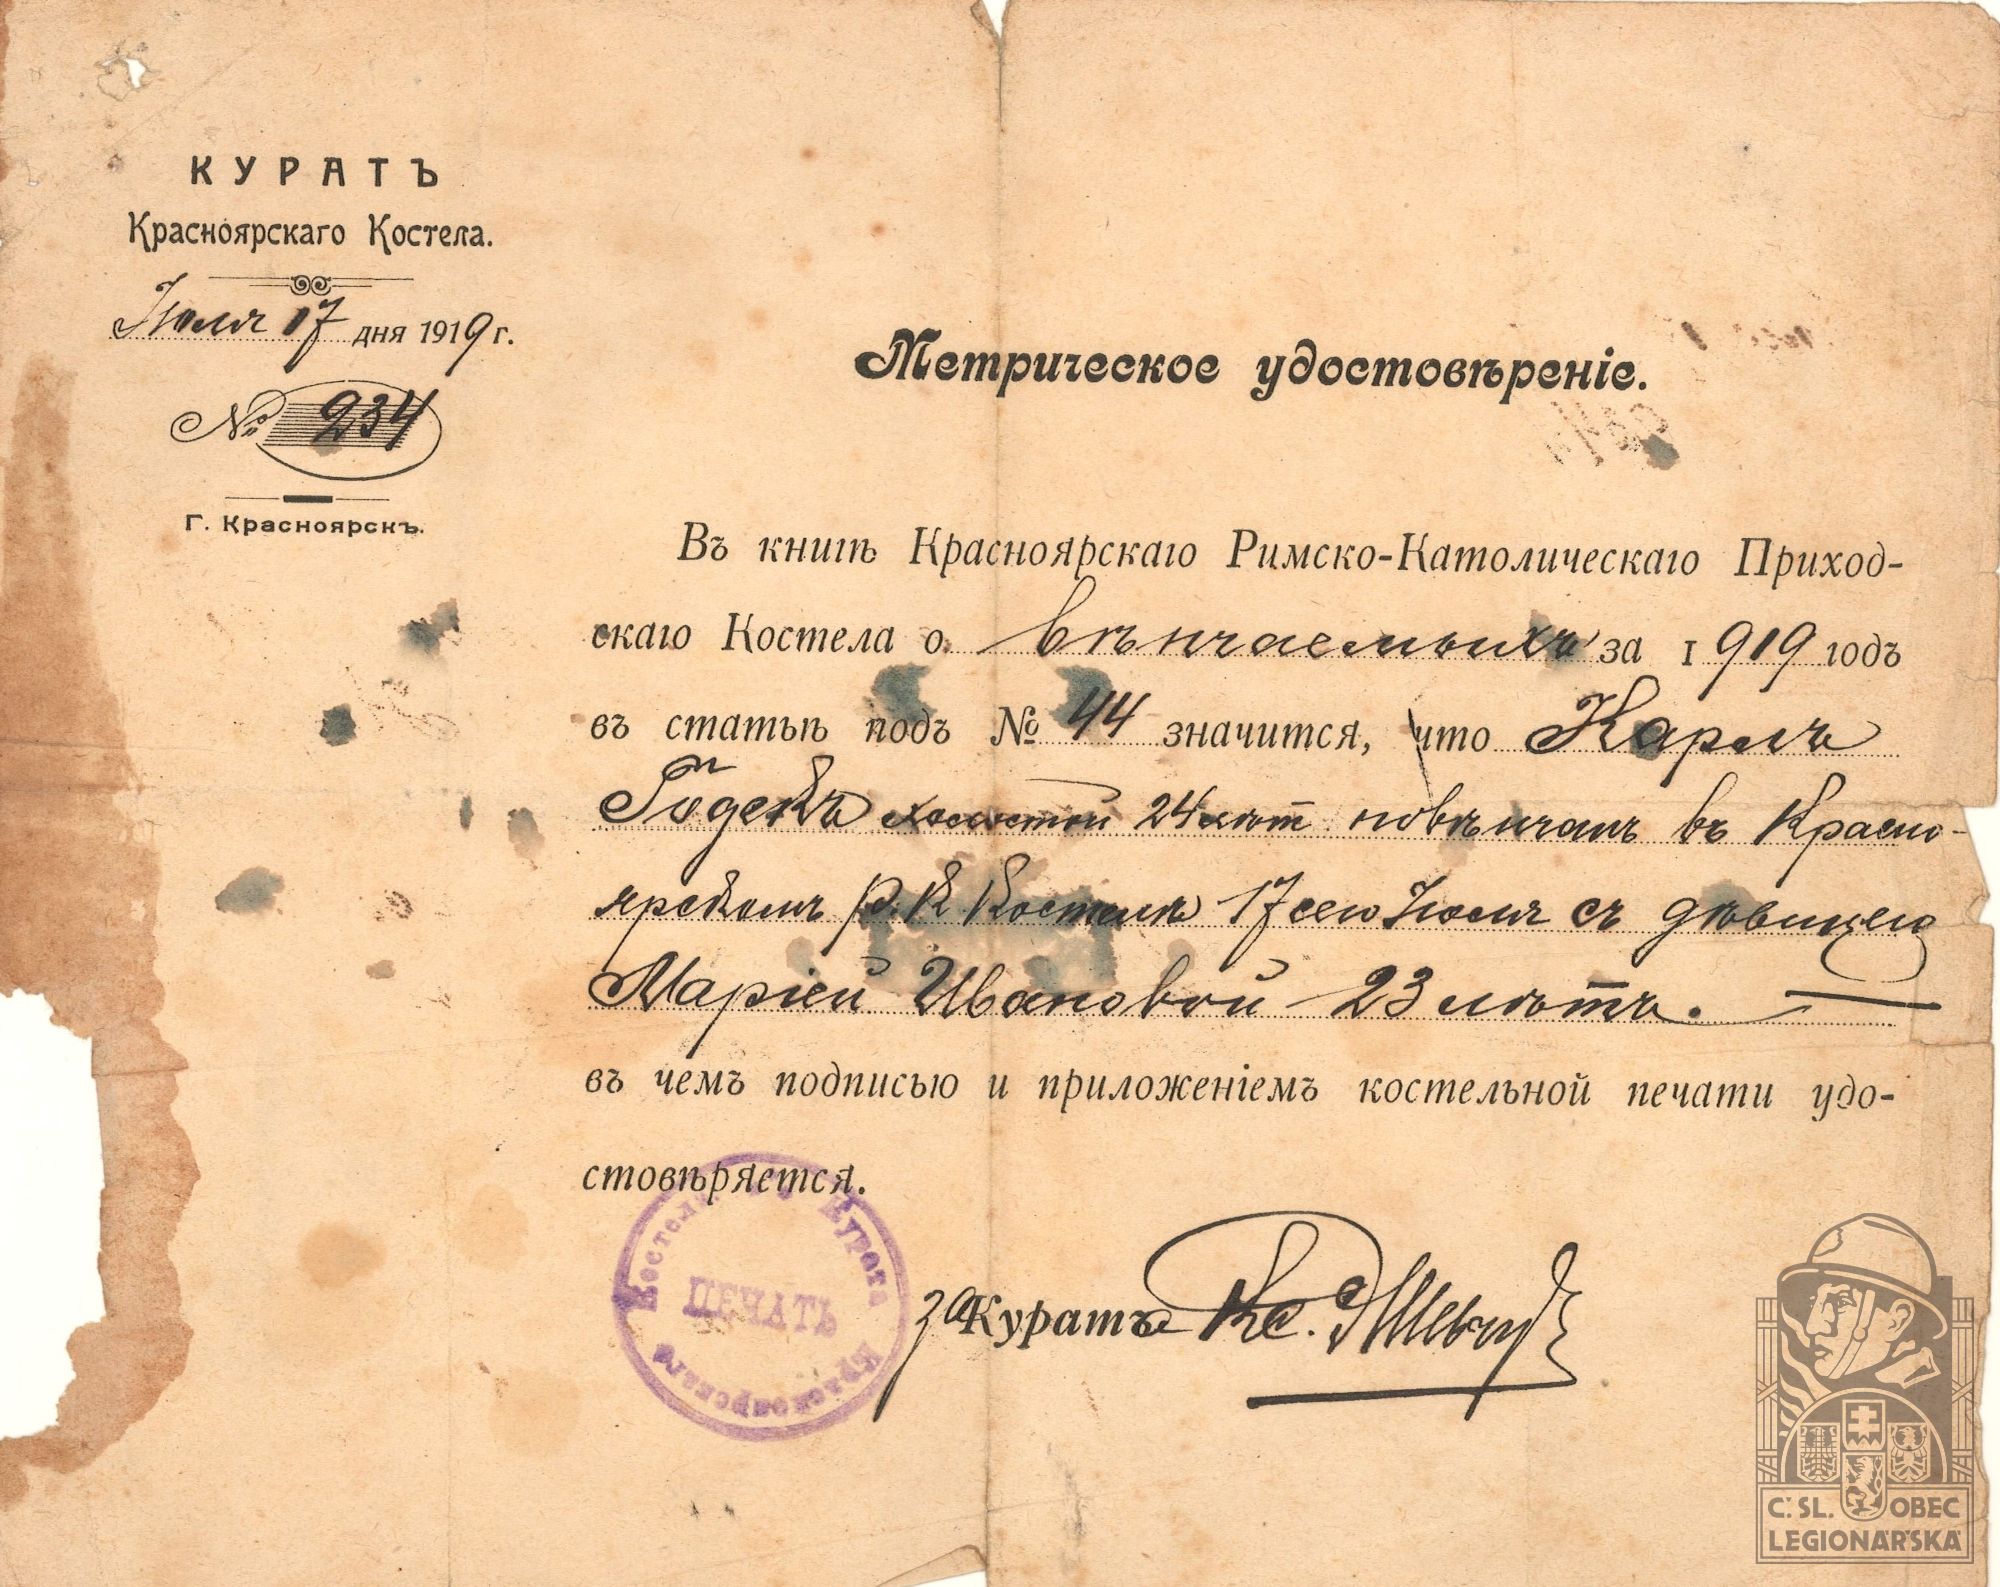 КУРАТЪ
Красноярскаго Костела.
Іюля 17 дня 1919 г.
№ 234
Г. Красноярскъ.
Метрическое удостовѣреніе.
Въ книгѣ Красноярскаго Римско-Католическаго Приход-
скаго Костела о вѣнчаемыхъ за 1919 годъ
въ статьѣ подъ № 44 значится, что Карлъ
холостой 24 лѣт повѣнчанъ въ Красно-
ярскомъ р. к Костелѣ 17 сего Іюля съ дѣвицею
Маріей Ивановой 23 лѣтъ.
въ чемъ подписью и приложеніемъ костельной печати удо-
стовѣряется.
Курата Красноярскаго
ПЕЧАТЬ
за Куратъ Кс.
Č. SL. OBEC
LEGIONÁŘSKÁ